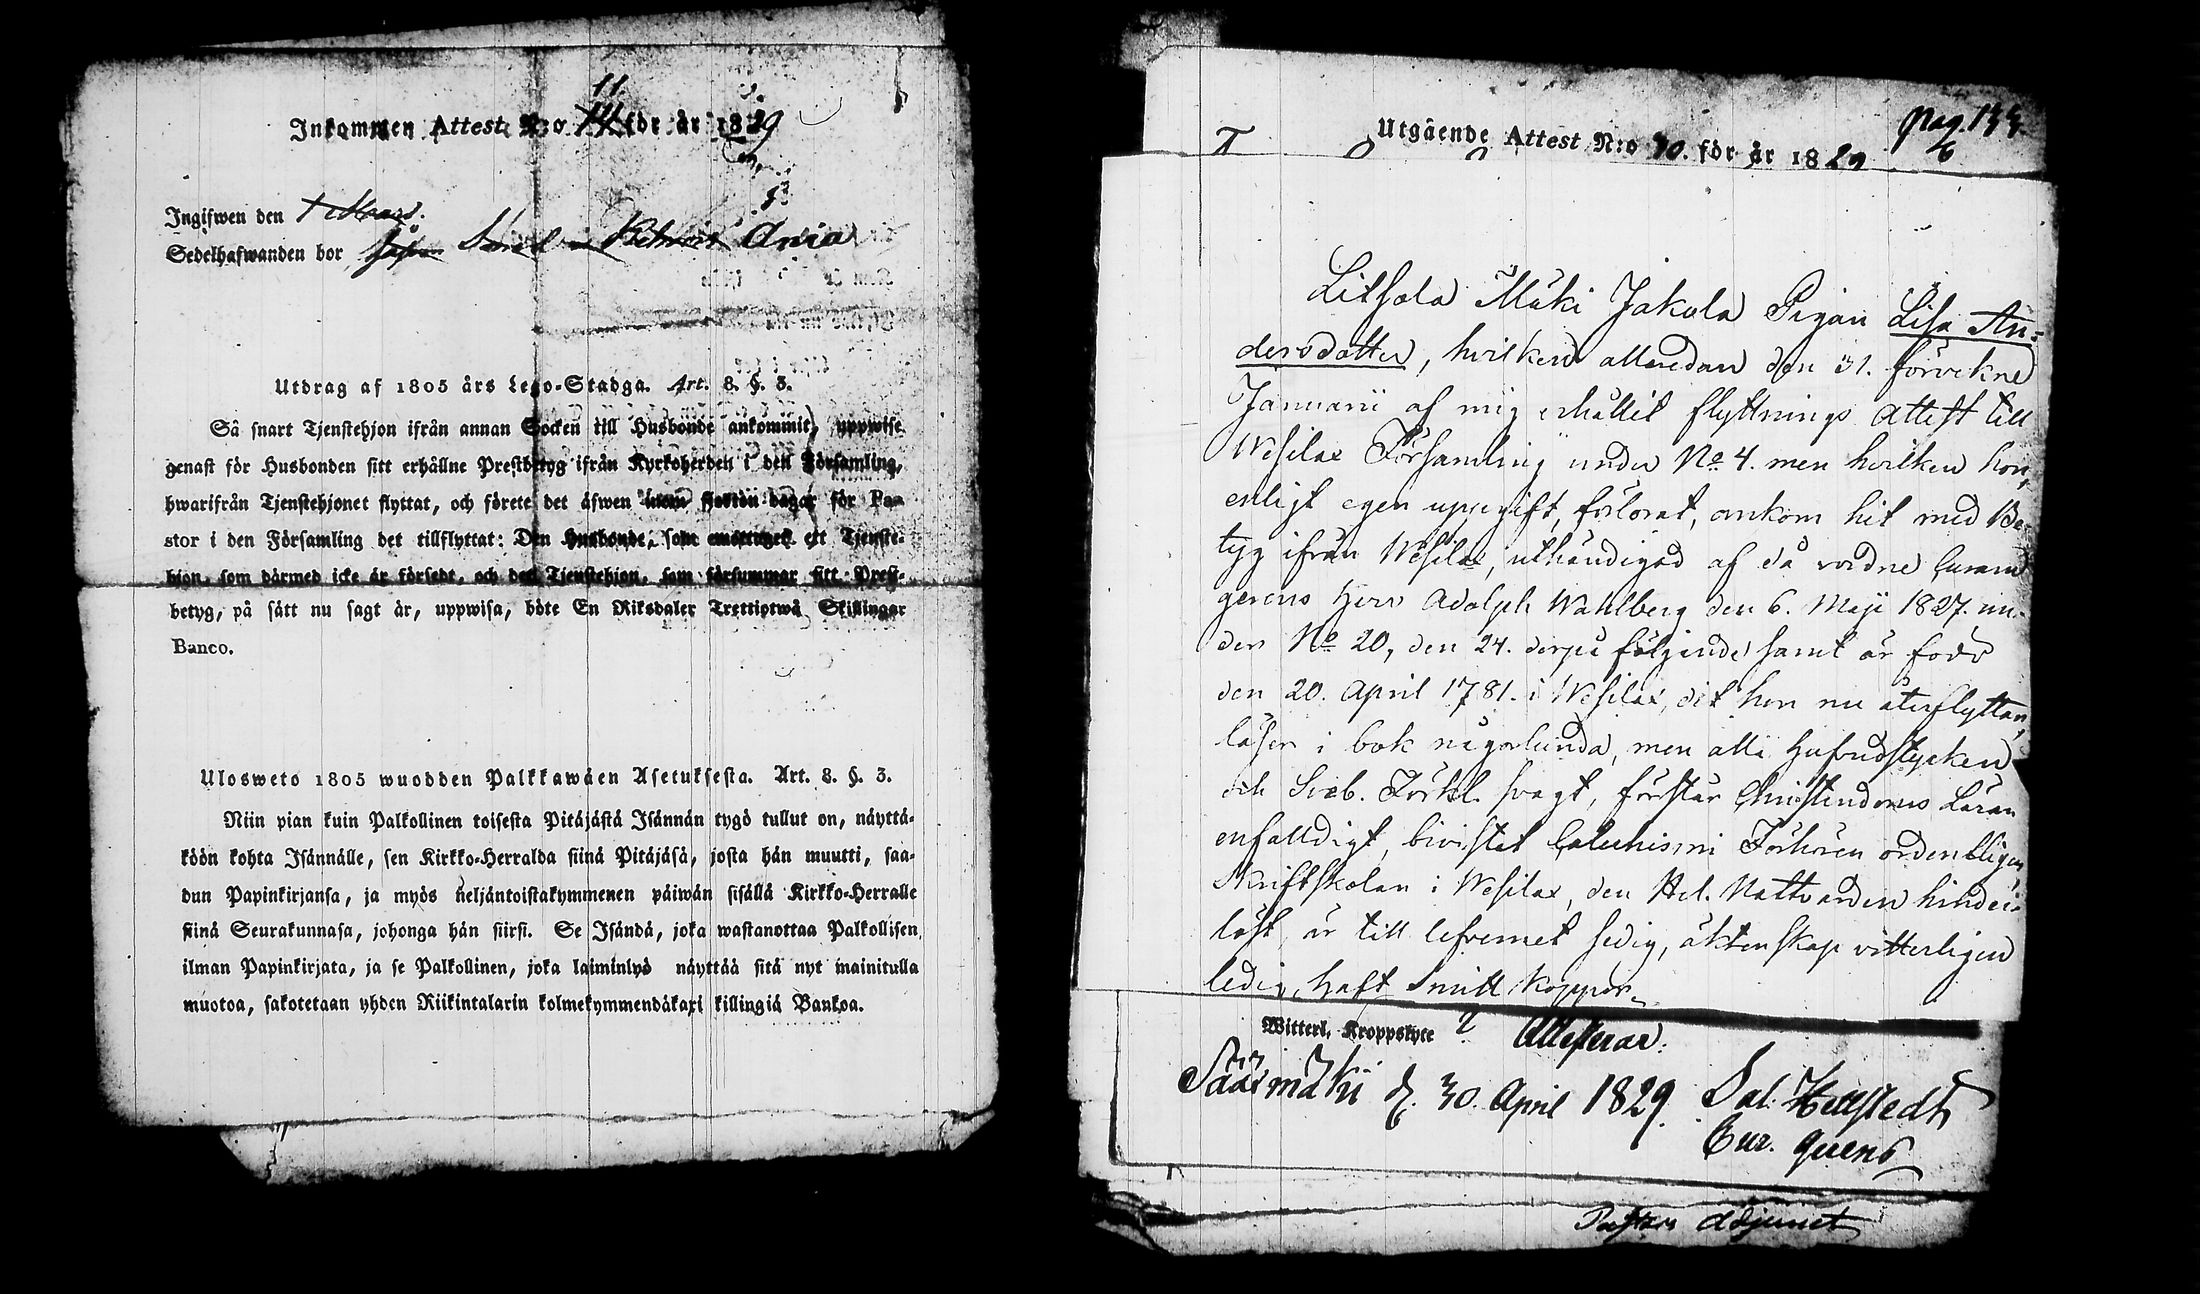 11.
Inkommen Attest N:o 14 för år 1829
Ingifwen den 1 Mars.
Sedelhafwanden bor Ania
Utdrag af 1805 års Lego-Stadga. Art. 8. §. 3.
Så snart Tjenstehjon ifrån annan Socken till Husbonde ankommit, uppwise
genast för Husbonden sitt erhållne Prestbetyg ifrån Kyrkoherden i den Församling,
hwarifrån Tjenstehjonet flyttat, och förete det äfwen inom fjorton dagar för Pa-
stor i den Församling det tillflyttat: Den Husbonde, som emottager ett Tjenste-
hjon, som därmed icke är försedt, och det Tjenstehjon, som försummar sitt Prest-
betyg, på sätt nu sagt är, uppwisa, böte En Riksdaler Trettiotwå Skillingar
Banco.
Ulosweto 1805 wuodden Palkkawäen Asetuksesta. Art. 8. §. 3.
Niin pian kuin Palkollinen toisesta Pitäjästä Isännän tygö tullut on, näyttä-
köön kohta Isännälle, sen Kirkko-Herralda siinä Pitäjäsä, josta hän muutti, saa-
dun Papinkirjansa, ja myös neljäntoistakymmenen päiwän sisällä Kirkko-Herralle
siinä Seurakunnasa, johonga hän siirsi. Se Isändä, joka wastanottaa Palkollisen,
ilman Papinkirjata, ja se Palkollinen, joka laiminlyö näyttää sitä nyt mainitulla
muotoa, sakotetaan yhden Riikintalarin kolmekymmendäkaxi killingiä Bankoa.
pag. 133.
6
Utgående Attest N:o 30. för år 1829
Litsola Mäki Jakola Pigan Lisa An-
dersdotter, hvilken allaredan den 31. förvekne
Januarii af mig erhållit flyttnings Attest till
Wesilax Församling under No 4. men hvilken hon,
enligt egen uppgift, förlorat, ankom hit med Be-
tyg ifrån Wesilax, uthändigad af då vordne Curam
gerens Herr Adolph Wahlberg den 6. Maji 1827. un-
der No 20, den 24. derpå följande samt är född
den 20. April 1781. i Wesilax, dit hon nu återflyttar,
läser i bok någorlunda, men alla Hufvudstycken
och Sveb. Förkl. svagt, förstår Christendoms Läran
enfalldigt, bivistat Catechismi Förhören ordentligen
Skriftskolan i Wesilax, den Hel. Nattvarden hinder-
löst, är till lefvernet sedig, äktenskap vitterligen
ledig, haft Smitt koppor.
Witterl. Kroppslyte ? Attesterar.
Sääxmäki d. 30. April 1829. Sal. Hellstedt
Cur. gerens
Pastors Adjunct